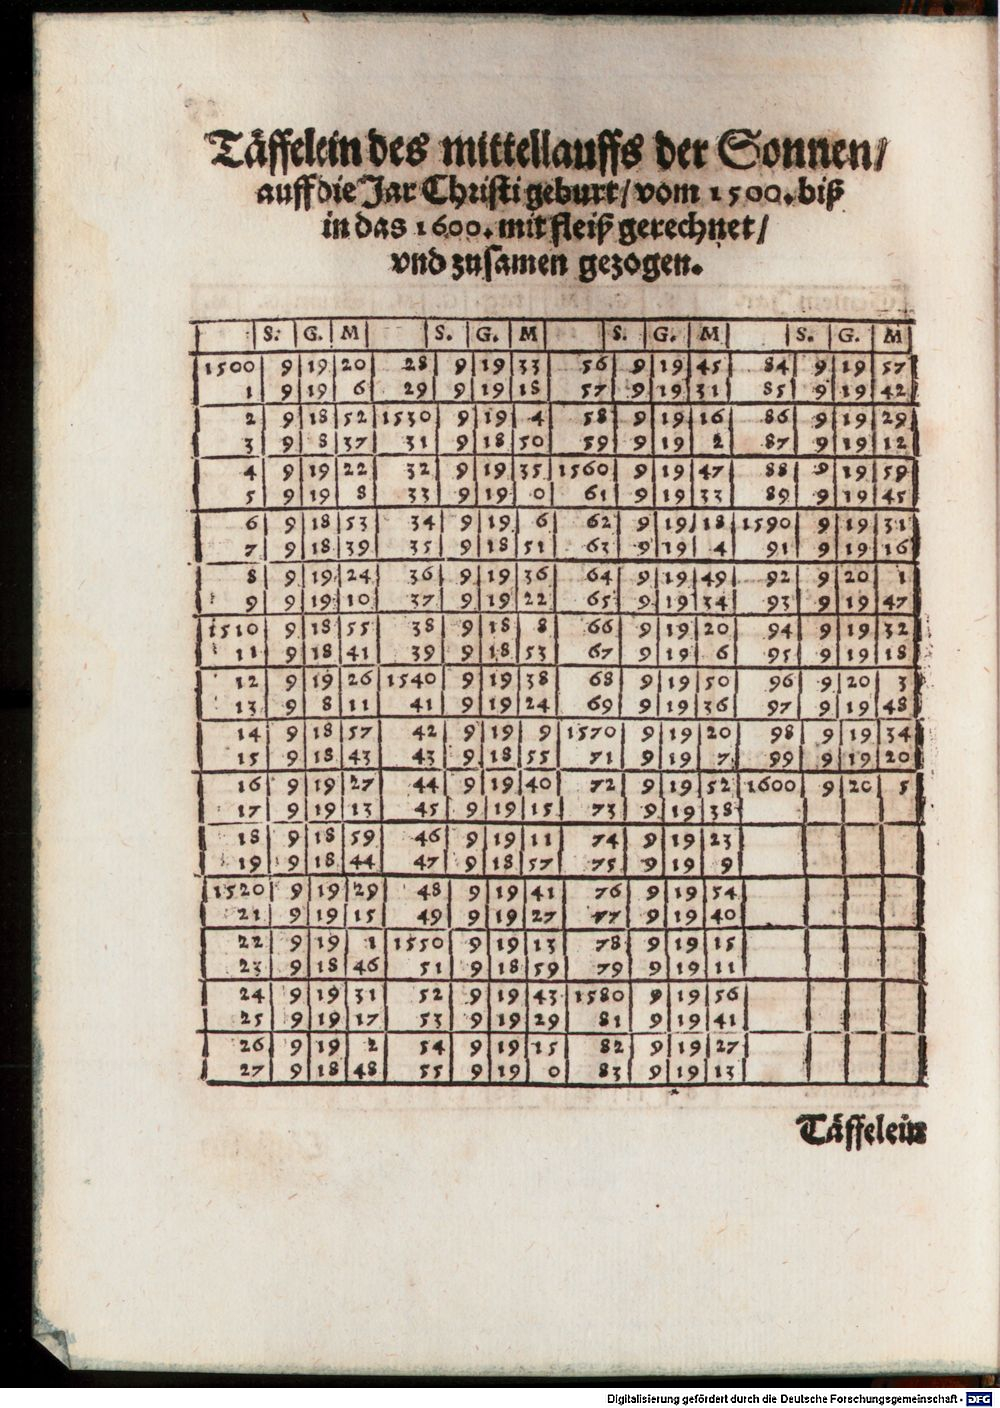 Täffelein des mittellauffs der Sonnen/
auff die Jar Christi geburt/ vom 1500. biß
in das 1600. mit fleiß gerechnet/
vnd zusamen gezogen.
S. G. M S. G. M S. G. M S. G. M
1500 9 19 20 28 9 19 33 56 9 19 45 84 9 19 57
1 9 19 6 29 9 19 18 57 9 19 31 85 9 19 42
2 9 18 52 1530 9 19 4 58 9 19 16 86 9 19 29
3 9 8 37 31 9 18 50 59 9 19 2 87 9 19 12
4 9 19 22 32 9 19 35 1560 9 19 47 88 9 19 59
5 9 19 8 33 9 19 0 61 9 19 33 89 9 19 45
6 9 18 53 34 9 19 6 62 9 19 18 1590 9 19 31
7 9 18 39 35 9 18 51 63 9 19 4 91 9 19 16
8 9 19 24 36 9 19 36 64 9 19 49 92 9 20 1
9 9 19 10 37 9 19 22 65 9 19 34 93 9 19 47
1510 9 18 55 38 9 18 8 66 9 19 20 94 9 19 32
11 9 18 41 39 9 18 53 67 9 19 6 95 9 19 18
12 9 19 26 1540 9 19 38 68 9 19 50 96 9 20 3
13 9 8 11 41 9 19 24 69 9 19 36 97 9 19 48
14 9 18 57 42 9 19 9 1570 9 19 20 98 9 19 34
15 9 18 43 43 9 18 55 71 9 19 7 99 9 19 20
16 9 19 27 44 9 19 40 72 9 19 52 1600 9 20 5
17 9 19 13 45 9 19 15 73 9 19 38
18 9 18 59 46 9 19 11 74 9 19 23
19 9 18 44 47 9 18 57 75 9 19 9
1520 9 19 29 48 9 19 41 76 9 19 54
21 9 19 15 49 9 19 27 77 9 19 40
22 9 19 1 1550 9 19 13 78 9 19 15
23 9 18 46 51 9 18 59 79 9 19 11
24 9 19 31 52 9 19 43 1580 9 19 56
25 9 19 17 53 9 19 29 81 9 19 41
26 9 19 2 54 9 19 15 82 9 19 27
27 9 18 48 55 9 19 0 83 9 19 13
Täffelein
Digitalisierung gefördert durch die Deutsche Forschungsgemeinschaft - DFG